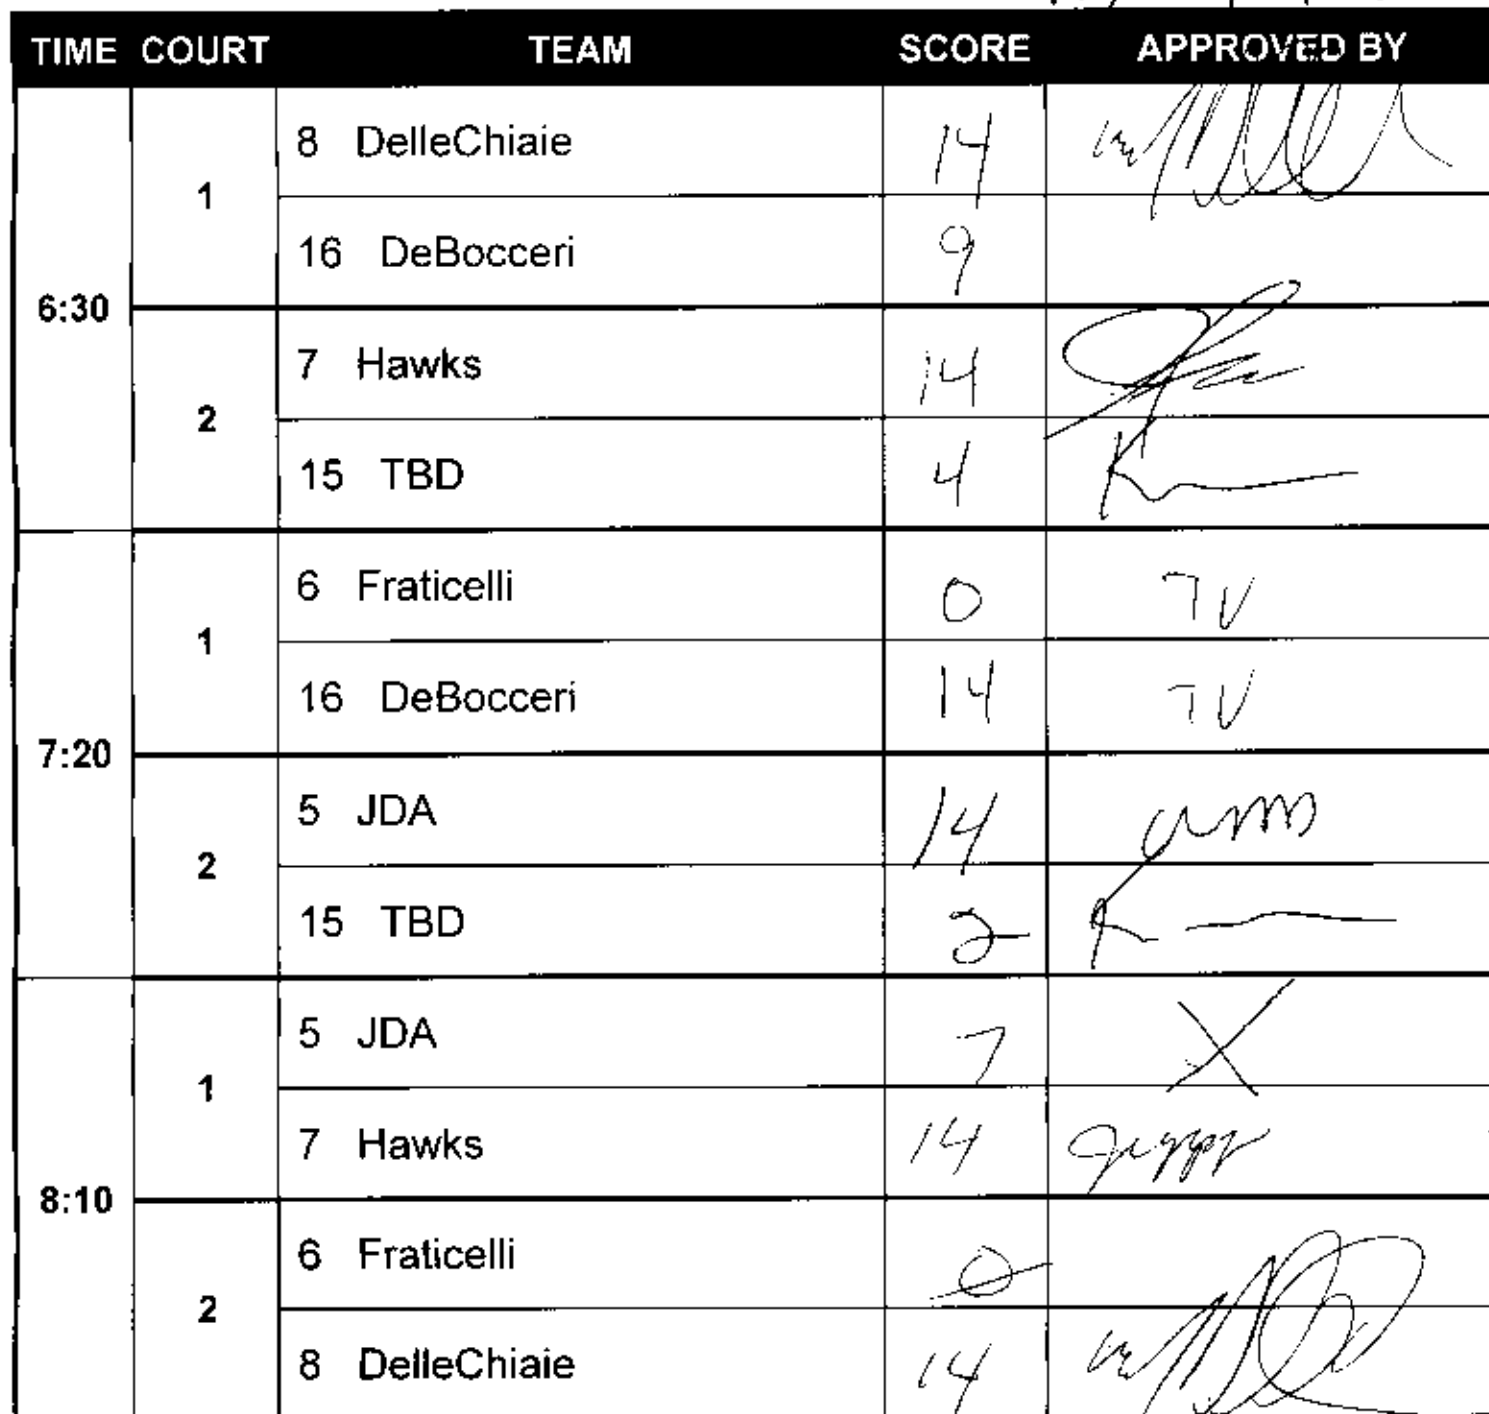 TIME COURT TEAM SCORE APPROVED BY
6:30
1
8 DelleChiaie 14
16 DeBocceri 9
2
7 Hawks 14
15 TBD 4
7:20
1
6 Fraticelli 0 TV
16 DeBocceri 14 TV
2
5 JDA 14
15 TBD 2
8:10
1
5 JDA 7 X
7 Hawks 14
2
6 Fraticelli 0
8 DelleChiaie 14